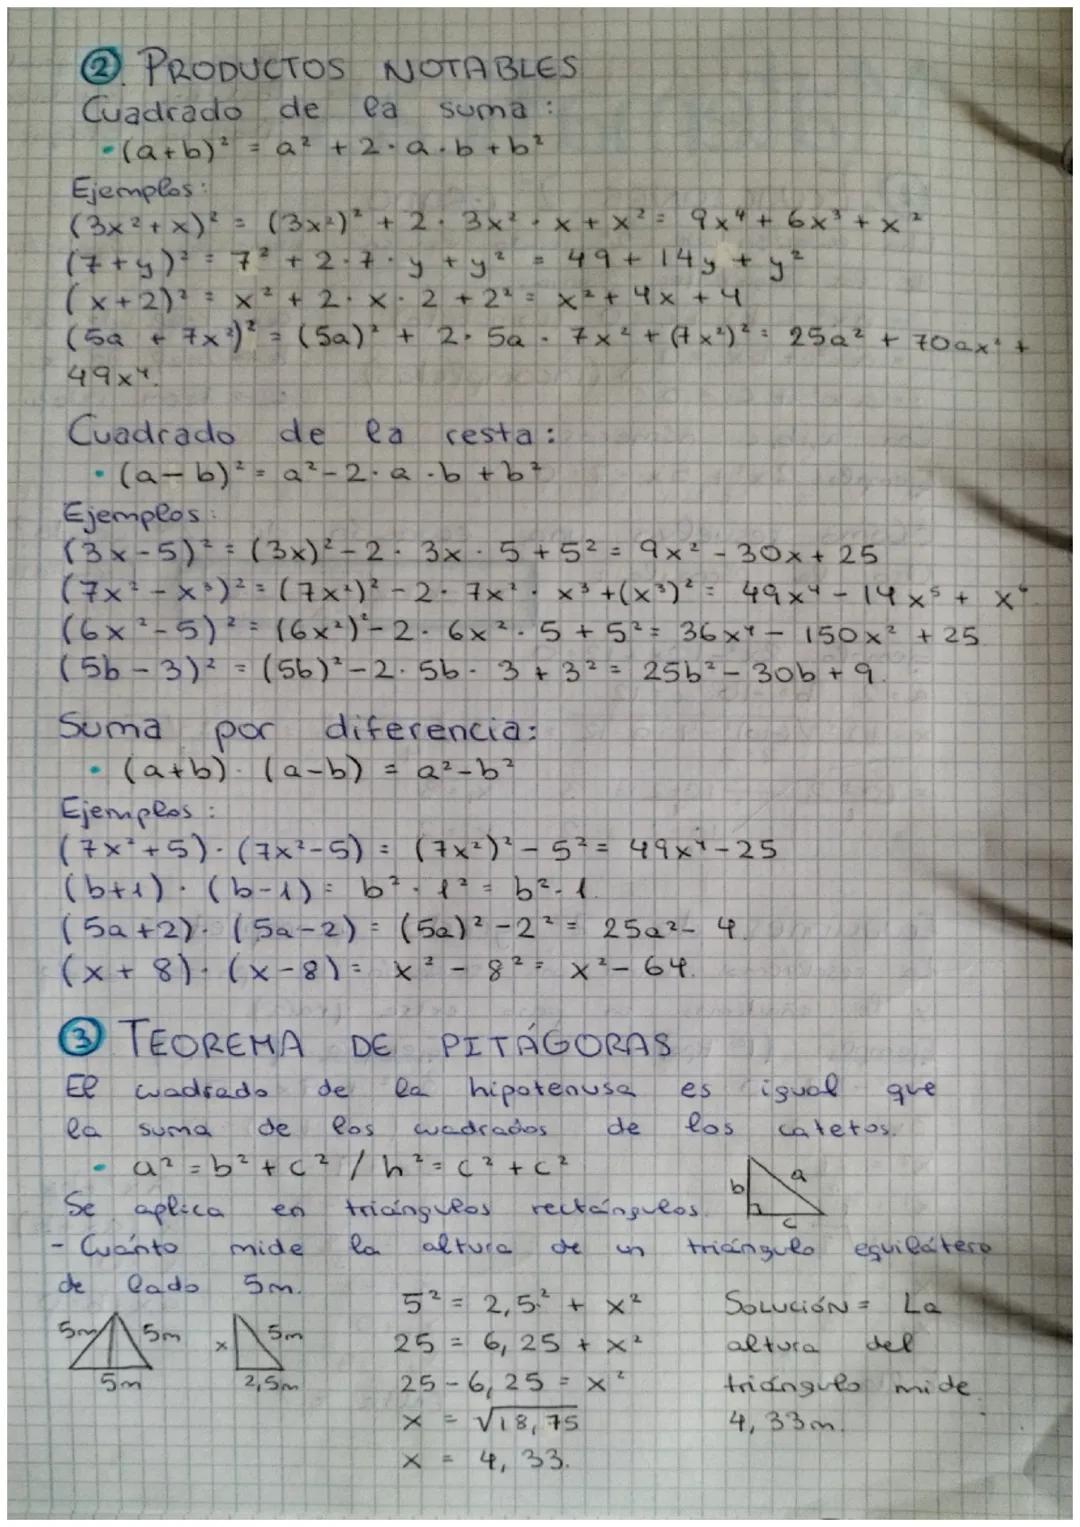 ② PRODUCTOS NOTABLES
Cuadrado de la suma:
• (a+b)² = a² + 2·a·b + b²
Ejemplos:
(3x²+x)² = (3x²)² + 2· 3x²· x + x² = 9x⁴ + 6x³ + x²
(7+y)² = 7² + 2·7· y + y² = 49 + 14y + y²
(x+2)² = x² + 2· x· 2 + 2² = x² + 4x + 4
(5a + 7x²)² = (5a)² + 2· 5a · 7x² + (7x²)² = 25a² + 70ax² +
49x⁴.
Cuadrado de la resta:
• (a-b)² = a² - 2·a·b + b²
Ejemplos:
(3x-5)² = (3x)² - 2· 3x · 5 + 5² = 9x² - 30x + 25
(7x² - x³)² = (7x²)² - 2· 7x² · x³ + (x³)² = 49x⁴ - 14x⁵ + x⁶
(6x²-5)² = (6x²)² - 2· 6x² · 5 + 5² = 36x⁴ - 150x² + 25
(5b-3)² = (5b)² - 2· 5b · 3 + 3² = 25b² - 30b + 9.
Suma por diferencia:
• (a+b)· (a-b) = a²-b²
Ejemplos:
(7x²+5)· (7x²-5) = (7x²)² - 5² = 49x⁴-25
(b+1) · (b-1) = b² - 1² = b²-1.
(5a+2)· (5a-2) = (5a)² - 2² = 25a² - 4.
(x+8)· (x-8) = x² - 8² = x² - 64.
③ TEOREMA DE PITÁGORAS
El cuadrado de la hipotenusa es igual que
la suma de los cuadrados de los catetos.
• a² = b² + c² / h² = c² + c²
b a
c
Se aplica en triángulos rectángulos.
- Cuánto mide la altura de un triángulo equilátero
de lado 5m.
5m 5m x 5m
5m 2,5m
5² = 2,5² + x²
25 = 6,25 + x²
25 - 6,25 = x²
x = √18,75
x = 4,33.
SOLUCIÓN = La
altura del
triángulo mide
4,33m.